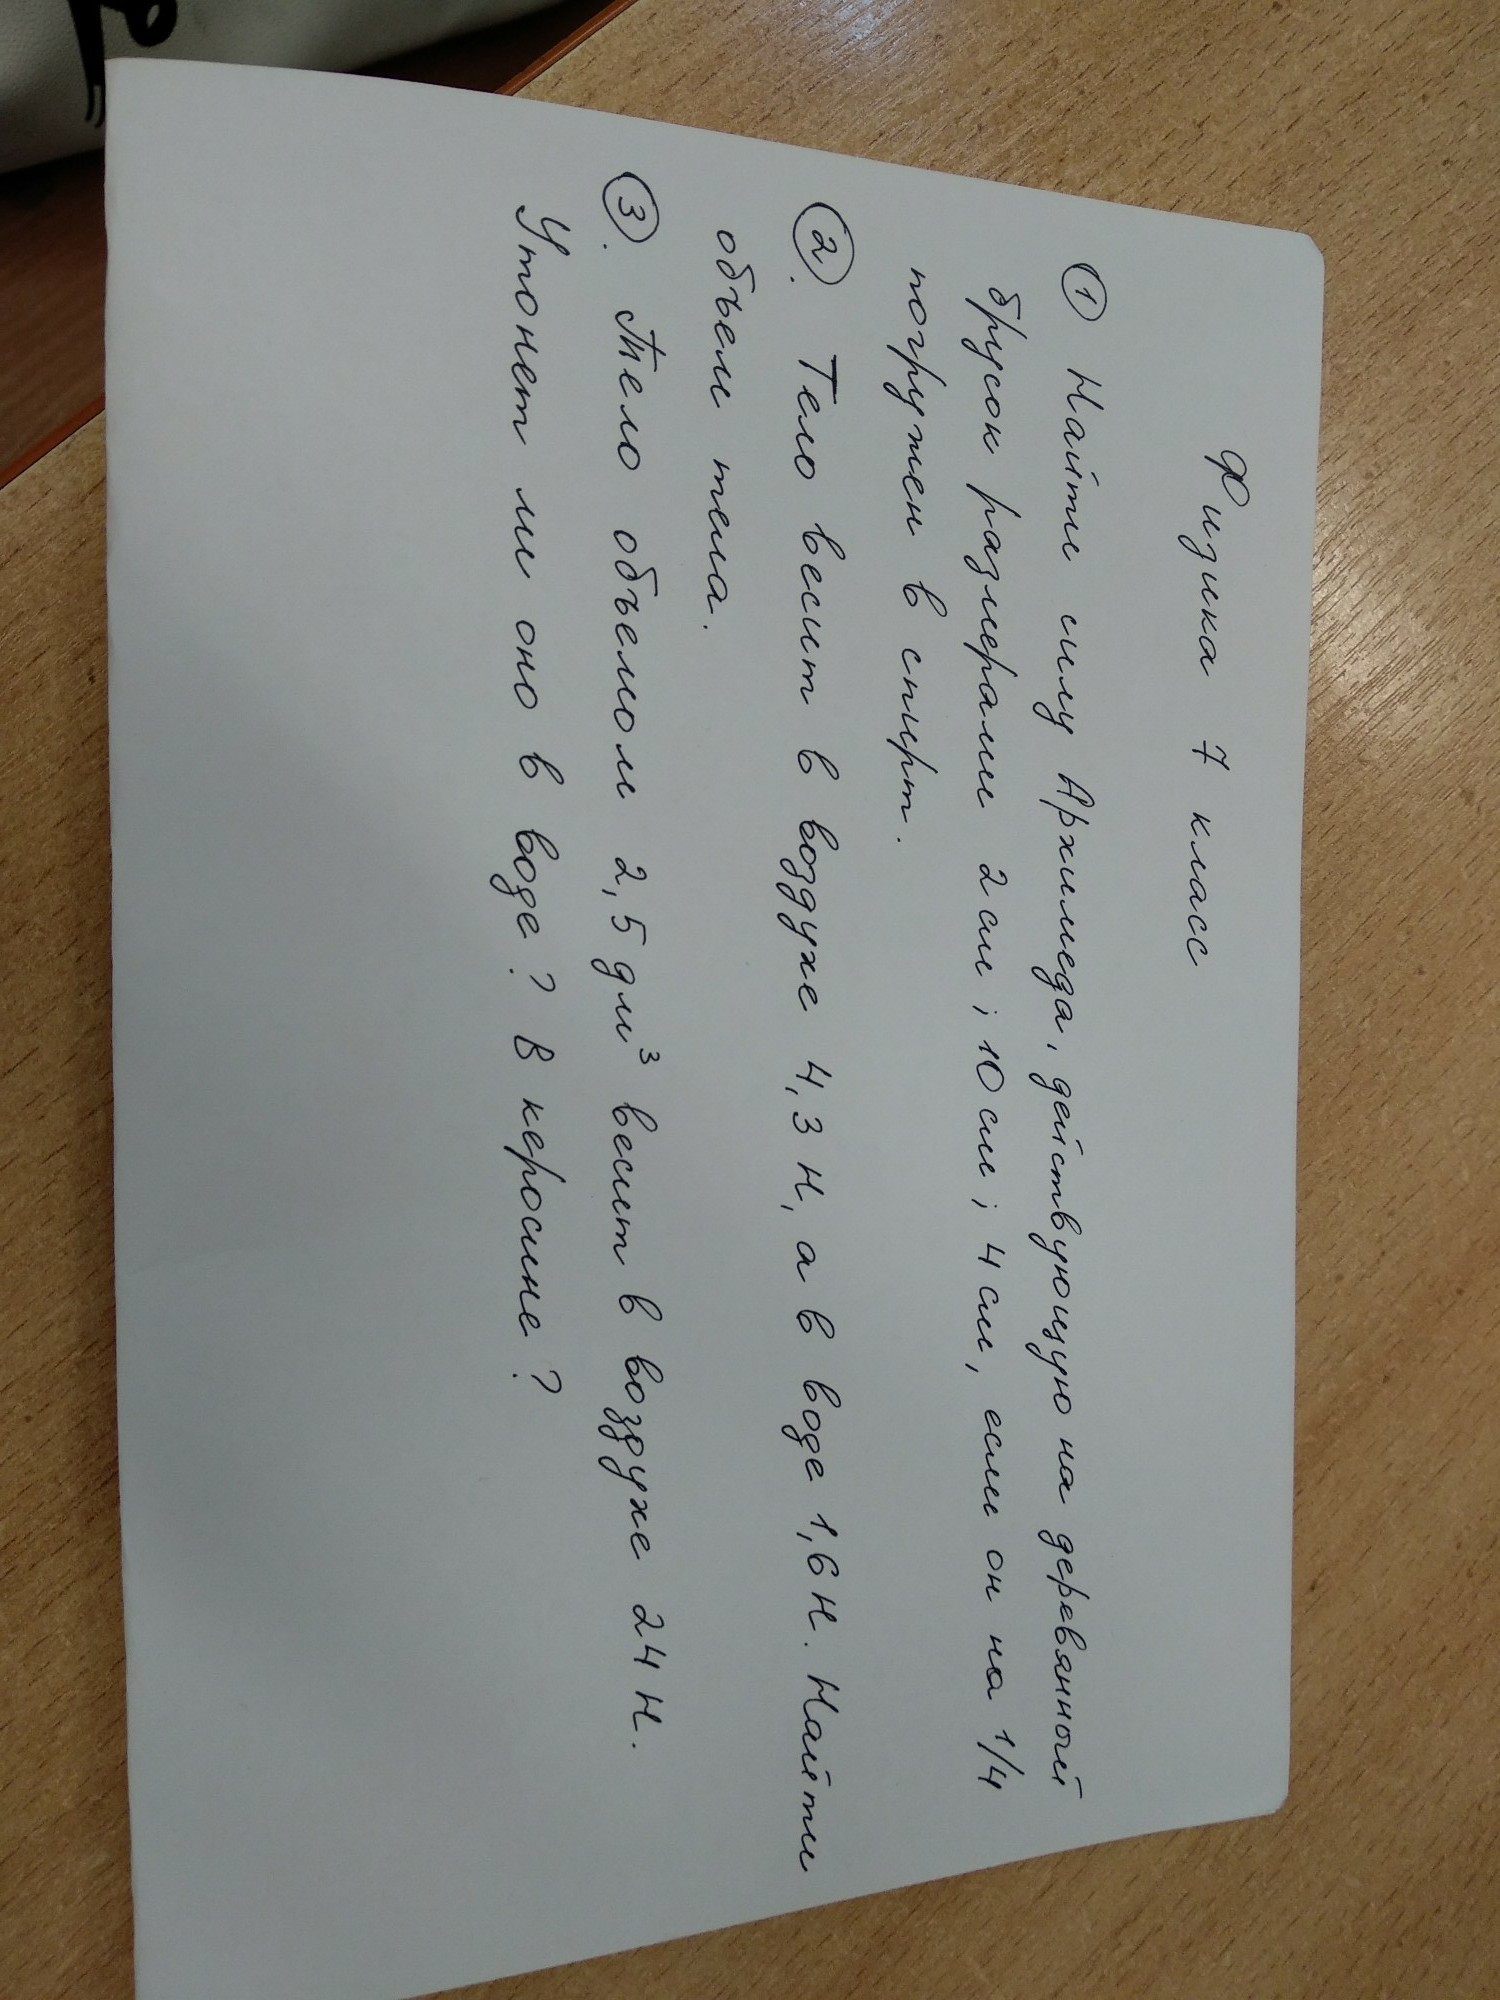 Физика 7 класс
① Найти силу Архимеда, действующую на деревянный
брусок размерами 2 см; 10 см; 4 см, если он на 1/4
погружен в спирт.
②. Тело весит в воздухе 4,3 Н, а в воде 1,6 Н. Найти
объем тела.
③. Тело объемом 2,5 дм³ весит в воздухе 24 Н.
Утонет ли оно в воде? В керосине?